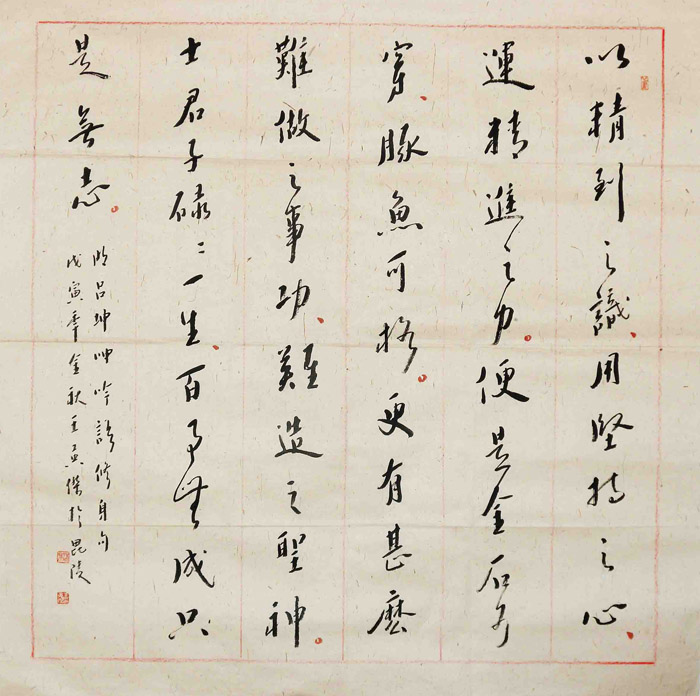 以精到之識、用堅持之心、
運精進之力。便是金石可
穿、豚魚可格。更有甚麼
難做之事功、難造之聖神。
士君子碌〻一生、百事無成只
是無志。
明呂坤呻吟語修身句
戊寅年金秋王於毘陵